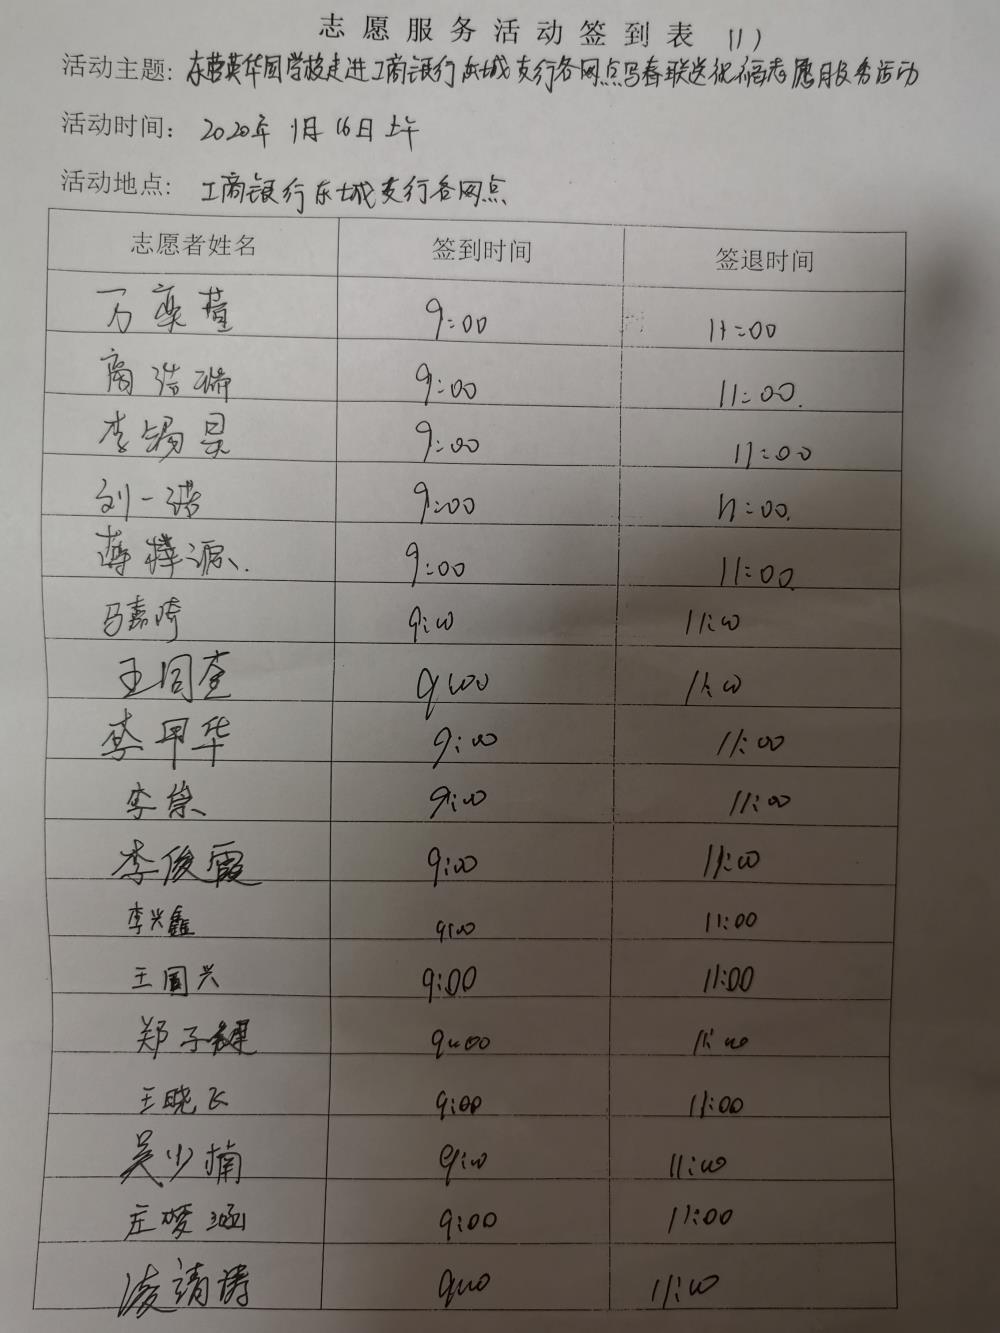 志愿服务活动签到表 (1)
活动主题: 东营英华园学校走进工商银行东城支行各网点写春联送祝福志愿服务活动
活动时间: 2020年1月16日上午
活动地点: 工商银行东城支行各网点
志愿者姓名 签到时间 签退时间
万奕萱 9:00 11:00
商浩瑞 9:00 11:00.
李锡昊 9:00 11:00
刘一诺 9:00 11:00.
薄梓源. 9:00 11:00
马嘉琦 9:00 11:00
王同奎 9:00 11:00
李甲华 9:00 11:00
李崇 9:00 11:00
李俊霞 9:00 11:00
李兴鑫 9:00 11:00
王国兴 9:00 11:00
郑子 9:00 11:00
王晓飞 9:00 11:00
吴少楠 9:00 11:00
庄梦涵 9:00 11:00
凌靖涛 9:00 11:00